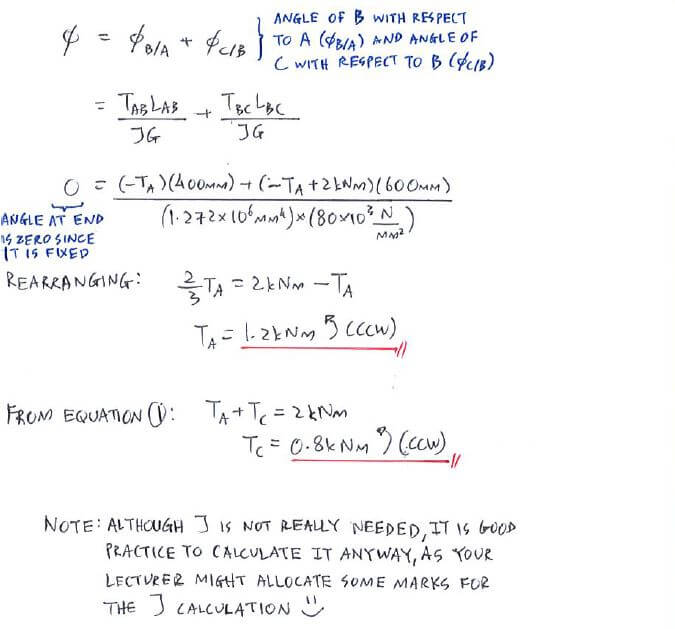 φ = φB/A + φC/B } ANGLE OF B WITH RESPECT
TO A (φB/A) AND ANGLE OF
C WITH RESPECT TO B (φC/B)
= TABLAB/JG + TBCLBC/JG
0 = (-TA)(400MM) + (-TA + 2kNM)(600MM) / (1.272×10⁶MM⁴)×(80×10³ N/MM²)
ANGLE AT END
IS ZERO SINCE
IT IS FIXED
REARRANGING: 2/3 TA = 2kNM - TA
TA = 1.2kNM (CCW)
FROM EQUATION ①: TA + TC = 2kNM
TC = 0.8kNM (CCW)
NOTE: ALTHOUGH J IS NOT REALLY NEEDED, IT IS GOOD
PRACTICE TO CALCULATE IT ANYWAY, AS YOUR
LECTURER MIGHT ALLOCATE SOME MARKS FOR
THE J CALCULATION